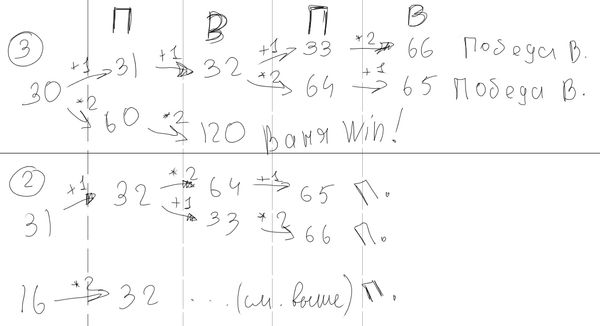 П В П В
3 +1 31 +1 32 +1 33 *2 66 Победа В.
30 *2 64 +1 65 Победа В.
*2 60 *2 120 Ваня Win!
2 +1 32 *2 64 +1 65 П.
31 +1 33 *2 66 П.
16 *2 32 ... (см. выше) П.